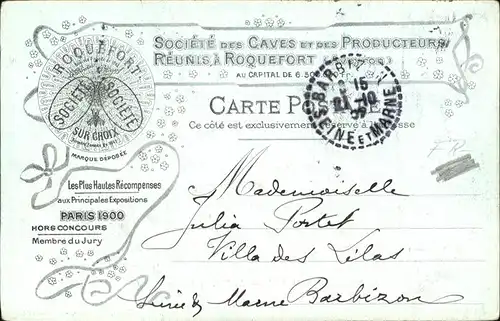 SOCIÉTÉ DES CAVES ET DES PRODUCTEURS
RÉUNIS, À ROQUEFORT
AU CAPITAL DE 6.5
ROQUEFORT
SOCIÉTÉ SOCIÉTÉ
SUR CHOIX
MARQUE DÉPOSÉE
CARTE POS
Ce côté est exclusivement réservé à l'adresse
15
SEINE ET MARNE
FR
Les Plus Hautes Récompenses
aux Principales Expositions
PARIS 1900
HORS CONCOURS
Membre du Jury
Mademoiselle
Julia Portet
Villa des Lilas
Seine & Marne Barbizon